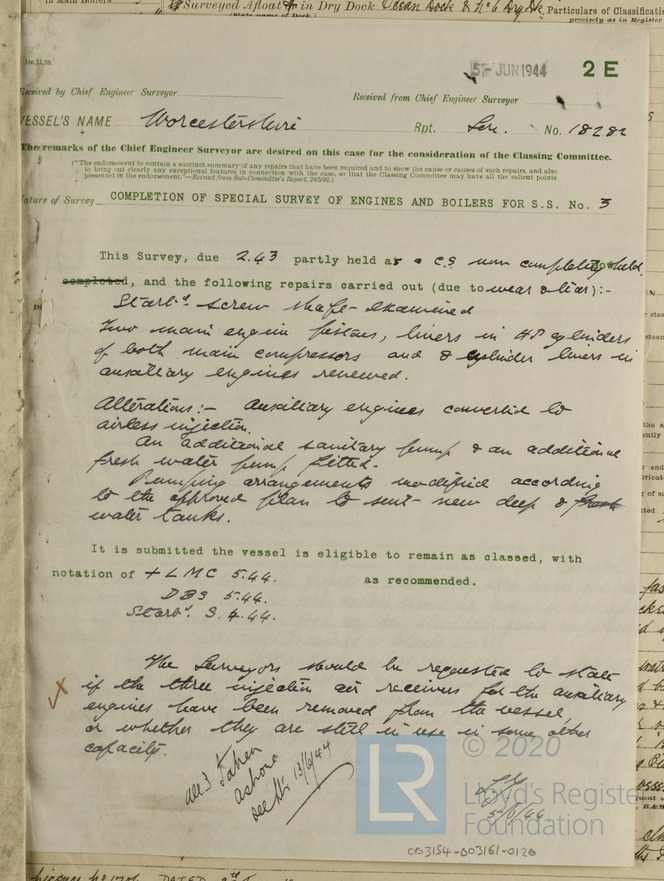 in Main Boilers
Surveyed Afloat & in Dry Dock Ocean Dock & No 6 Dry Dk.
Particulars of Classification
(State name of Dock.)
precisely as in Register
5 - JUN 1944
2 E
Received by Chief Engineer Surveyor
Received from Chief Engineer Surveyor
VESSEL'S NAME Worcestershire Rpt. Lon. No. 18282
The remarks of the Chief Engineer Surveyor are desired on this case for the consideration of the Classing Committee.
("The endorsement to contain a succinct summary of any repairs that have been required and to show the cause or causes of such repairs, and also
to bring out clearly any exceptional features in connection with the case, so that the Classing Committee may have all the salient points
presented in the endorsement."—Extract from Sub-Committee's Report, 24/5/92.)
Nature of Survey COMPLETION OF SPECIAL SURVEY OF ENGINES AND BOILERS FOR S.S. No. 3
This Survey, due 2.43 partly held as a C.S. now completed held
completed, and the following repairs carried out (due to wear & tear):-
Starbd. screw shaft examined
Two main engine pistons, liners in HP cylinders
of both main compressors and 8 cylinder liners in
auxiliary engines renewed.
Alterations:- Auxiliary engines converted to
airless injection.
An additional sanitary pump & an additional
fresh water pump fitted.
Pumping arrangements modified according
to the approved plan to suit new deep & fresh
water tanks.
It is submitted the vessel is eligible to remain as classed, with
notation of + LMC 5.44. as recommended.
DBS 5.44.
Starbd. S. 4.44.
The Surveyors should be requested to state
if the three injection air receivers for the auxiliary
engines have been removed from the vessel,
or whether they are still in use in some other
capacity.
all 3 Taken
ashore
see 13/6/44
5/6/44
LR
© 2020
Lloyd's Register
Foundation
003154-003161-0120